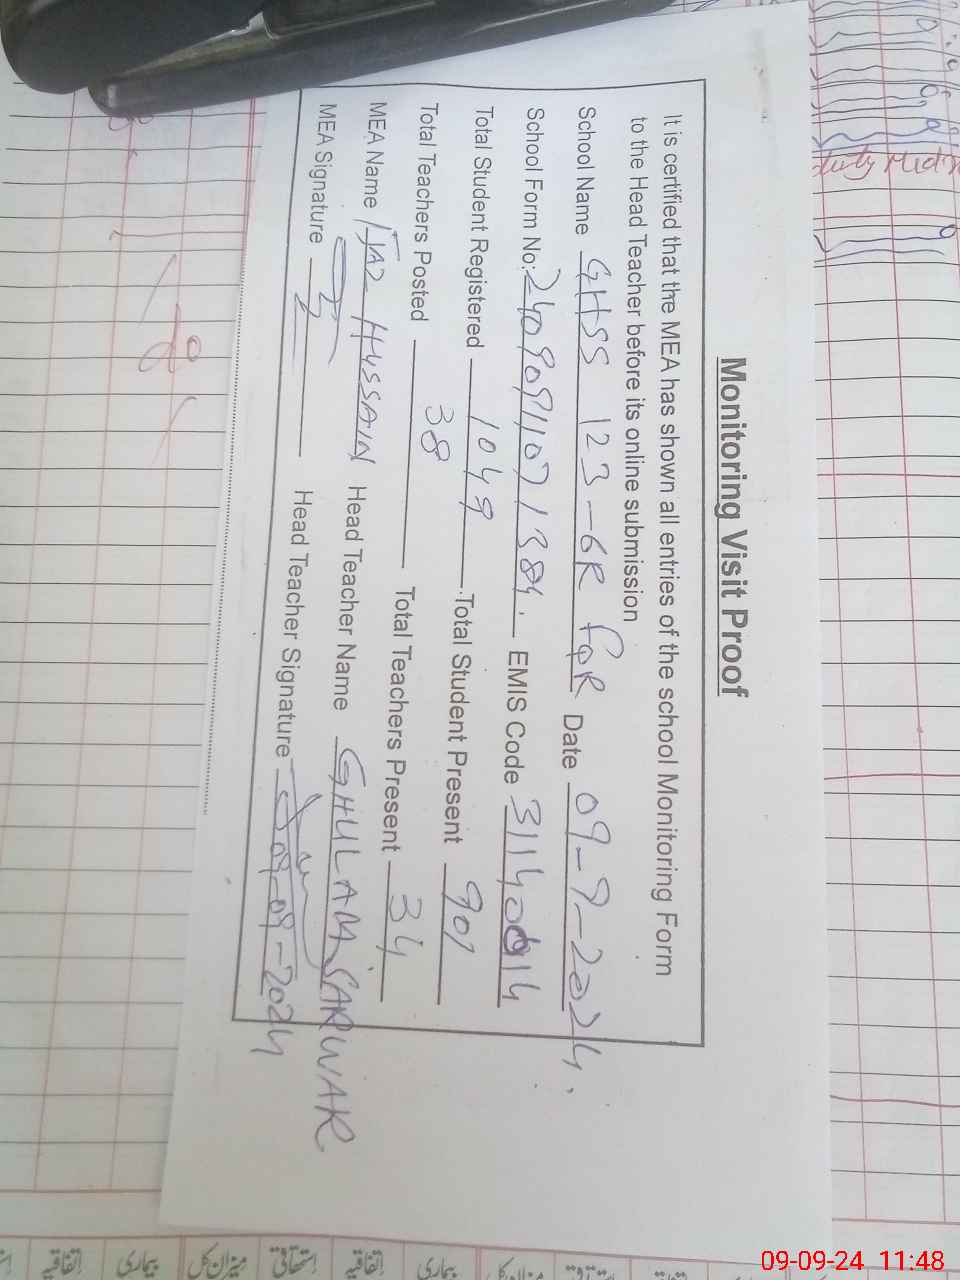 Monitoring Visit Proof
It is certified that the MEA has shown all entries of the school Monitoring Form
to the Head Teacher before its online submission
School Name GHSS 123-6R FQR Date 09-9-2024.
School Form No: EMIS Code 31140014
Total Student Registered 1049 Total Student Present 901
Total Teachers Posted 38 Total Teachers Present 34
MEA Name IJAZ HUSSAIN Head Teacher Name GHULAM SARWAR
MEA Signature Head Teacher Signature 09-09-2024
اتفاقیہ بیماری میزان کل استحقاقی اتفاقیہ بیماری
09-09-24 11:48